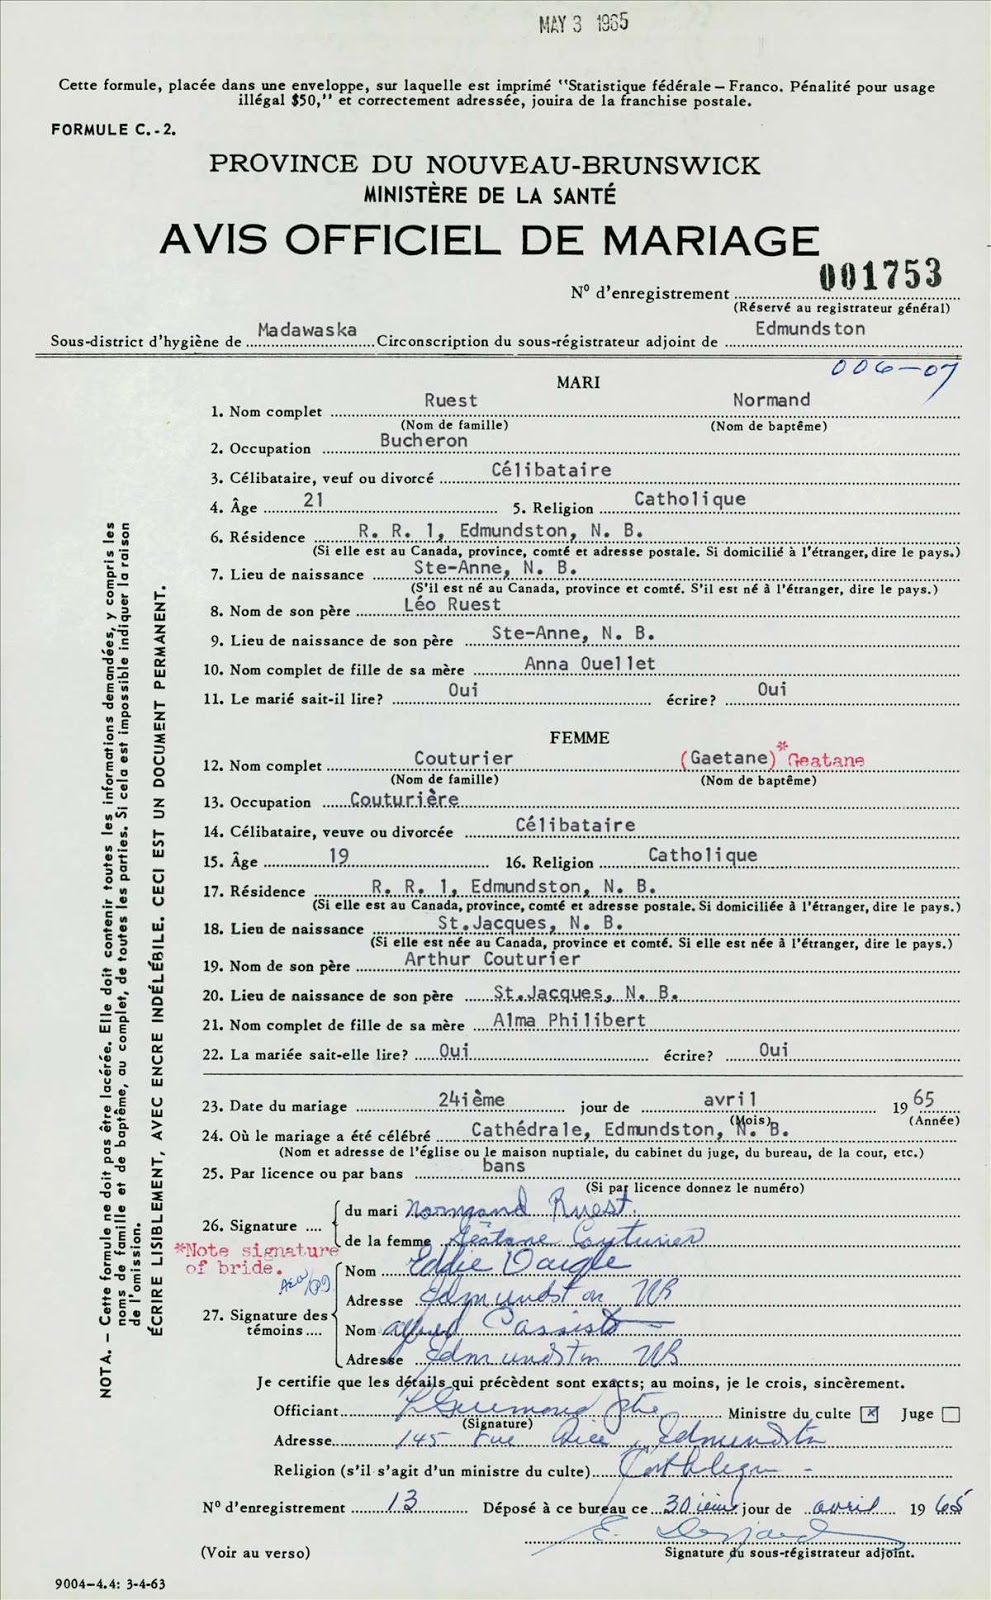 MAY 3 1965
Cette formule, placée dans une enveloppe, sur laquelle est imprimé "Statistique fédérale – Franco. Pénalité pour usage
illégal $50," et correctement adressée, jouira de la franchise postale.
FORMULE C.-2.
PROVINCE DU NOUVEAU-BRUNSWICK
MINISTÈRE DE LA SANTÉ
AVIS OFFICIEL DE MARIAGE
Nº d'enregistrement 001753
(Réservé au registrateur général)
Sous-district d'hygiène de Madawaska Circonscription du sous-régistrateur adjoint de Edmundston
006-07
MARI
1. Nom complet Ruest Normand
(Nom de famille) (Nom de baptême)
2. Occupation Bucheron
3. Célibataire, veuf ou divorcé Célibataire
4. Âge 21 5. Religion Catholique
6. Résidence R. R. 1, Edmundston, N. B.
(Si elle est au Canada, province, comté et adresse postale. Si domicilié à l'étranger, dire le pays.)
7. Lieu de naissance Ste-Anne, N. B.
(S'il est né au Canada, province et comté. S'il est né à l'étranger, dire le pays.)
8. Nom de son père Léo Ruest
9. Lieu de naissance de son père Ste-Anne, N. B.
10. Nom complet de fille de sa mère Anna Ouellet
11. Le marié sait-il lire? Oui écrire? Oui
FEMME
12. Nom complet Couturier (Gaetane)* Geatane
(Nom de famille) (Nom de baptême)
13. Occupation Couturière
14. Célibataire, veuve ou divorcée Célibataire
15. Âge 19 16. Religion Catholique
17. Résidence R. R. 1, Edmundston, N. B.
(Si elle est au Canada, province, comté et adresse postale. Si domiciliée à l'étranger, dire le pays.)
18. Lieu de naissance St.Jacques, N. B.
(Si elle est née au Canada, province et comté. Si elle est née à l'étranger, dire le pays.)
19. Nom de son père Arthur Couturier
20. Lieu de naissance de son père St.Jacques, N. B.
21. Nom complet de fille de sa mère Alma Philibert
22. La mariée sait-elle lire? Oui écrire? Oui
23. Date du mariage 24ième jour de avril 1965
(Mois) (Année)
24. Où le mariage a été célébré Cathédrale, Edmundston, N. B.
(Nom et adresse de l'église ou le maison nuptiale, du cabinet du juge, du bureau, de la cour, etc.)
25. Par licence ou par bans bans
(Si par licence donnez le numéro)
26. Signature du mari Normand Ruest
de la femme Géatane Couturier
*Note signature
of bride.
27. Signature des
témoins
Nom Eddie Daigle
Adresse Edmundston NB
Nom Alfred
Adresse Edmundston NB
Je certifie que les détails qui précèdent sont exacts; au moins, je le crois, sincèrement.
Officiant Ptre Ministre du culte x Juge
(Signature)
Adresse 145 rue Edmundston
Religion (s'il s'agit d'un ministre du culte)
Nº d'enregistrement 13 Déposé à ce bureau ce 30ième jour de avril 1965
E. Desjardins
Signature du sous-régistrateur adjoint.
(Voir au verso)
9004–4.4: 3-4-63
NOTA. – Cette formule ne doit pas être lacérée. Elle doit contenir toutes les informations demandées, y compris les
noms de famille et de baptême, au complet, de toutes les parties. Si cela est impossible indiquer la raison
de l'omission.
ÉCRIRE LISIBLEMENT, AVEC ENCRE INDÉLÉBILE. CECI EST UN DOCUMENT PERMANENT.